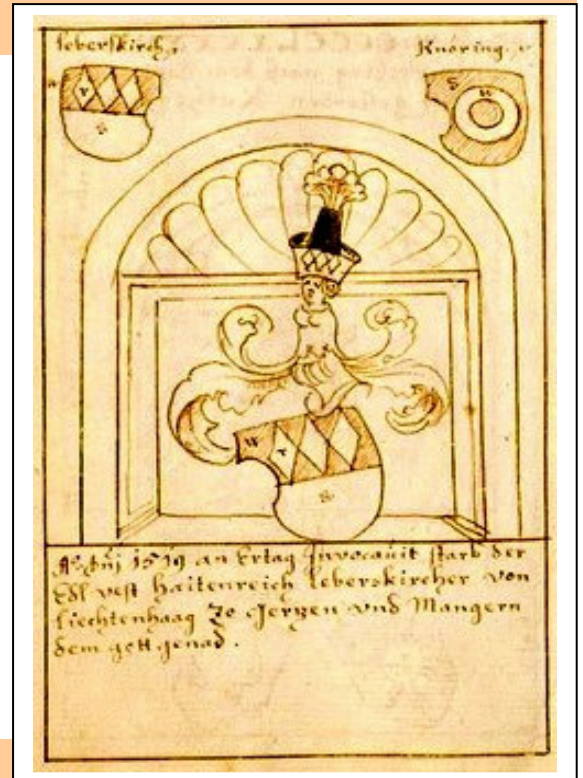 Leberskirch.
Knöring.
S
W
S
W
S
Aō dnj 1519 an Ertag Invocauit starb der
Edl vest Haitenreich Leberskircher von
Liechtenhaag Zo Gerzen vnd Mangern
dem gott genad.